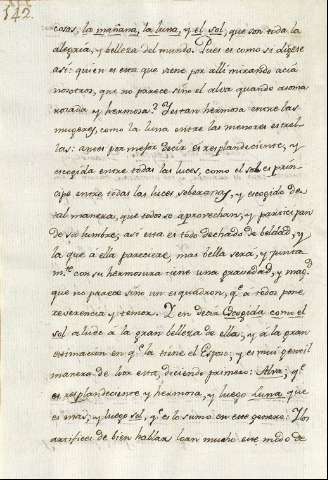 542
cosas, la mañana, la luna, y el sol, que son toda la
alegria, y belleza del mundo. Pues es como si dixese
asi: quien es esta que viene por alli mirando acia
nosotros, que no parece sino el alva quando asoma
rosada y hermosa? Y es tan hermosa entre las
mugeres, como la luna entre las menores estrel-
las: antes por mejor decir es resplandeciente, y
escogida entre todas las luces, como el sol es prin-
cipe entre todas las luces soberanas, y escogido de
tal manera, que todos se aprovechan, y participan
de su lumbre; asi esta es todo dechado de beldad, y
la que a ella pareciere, mas bella sera, y junta
mte. con su hermosura tiene una gravedad, y magd.
que no parece sino un esquadron, qe. a todos pone
reverencia y temor. Y en decir Escogida como el
sol alude á la gran belleza de ella, y á la gran
estimacion en qe. la tiene el Esposo; y es mui gentil
manera de loar esta, diciendo primero: Alva; qe.
es resplandeciente y hermosa, y luego Luna que
es mas, y luego sol, qe. es lo sumo en este genero: Y los
artifices de bien hablar loan mucho este modo de